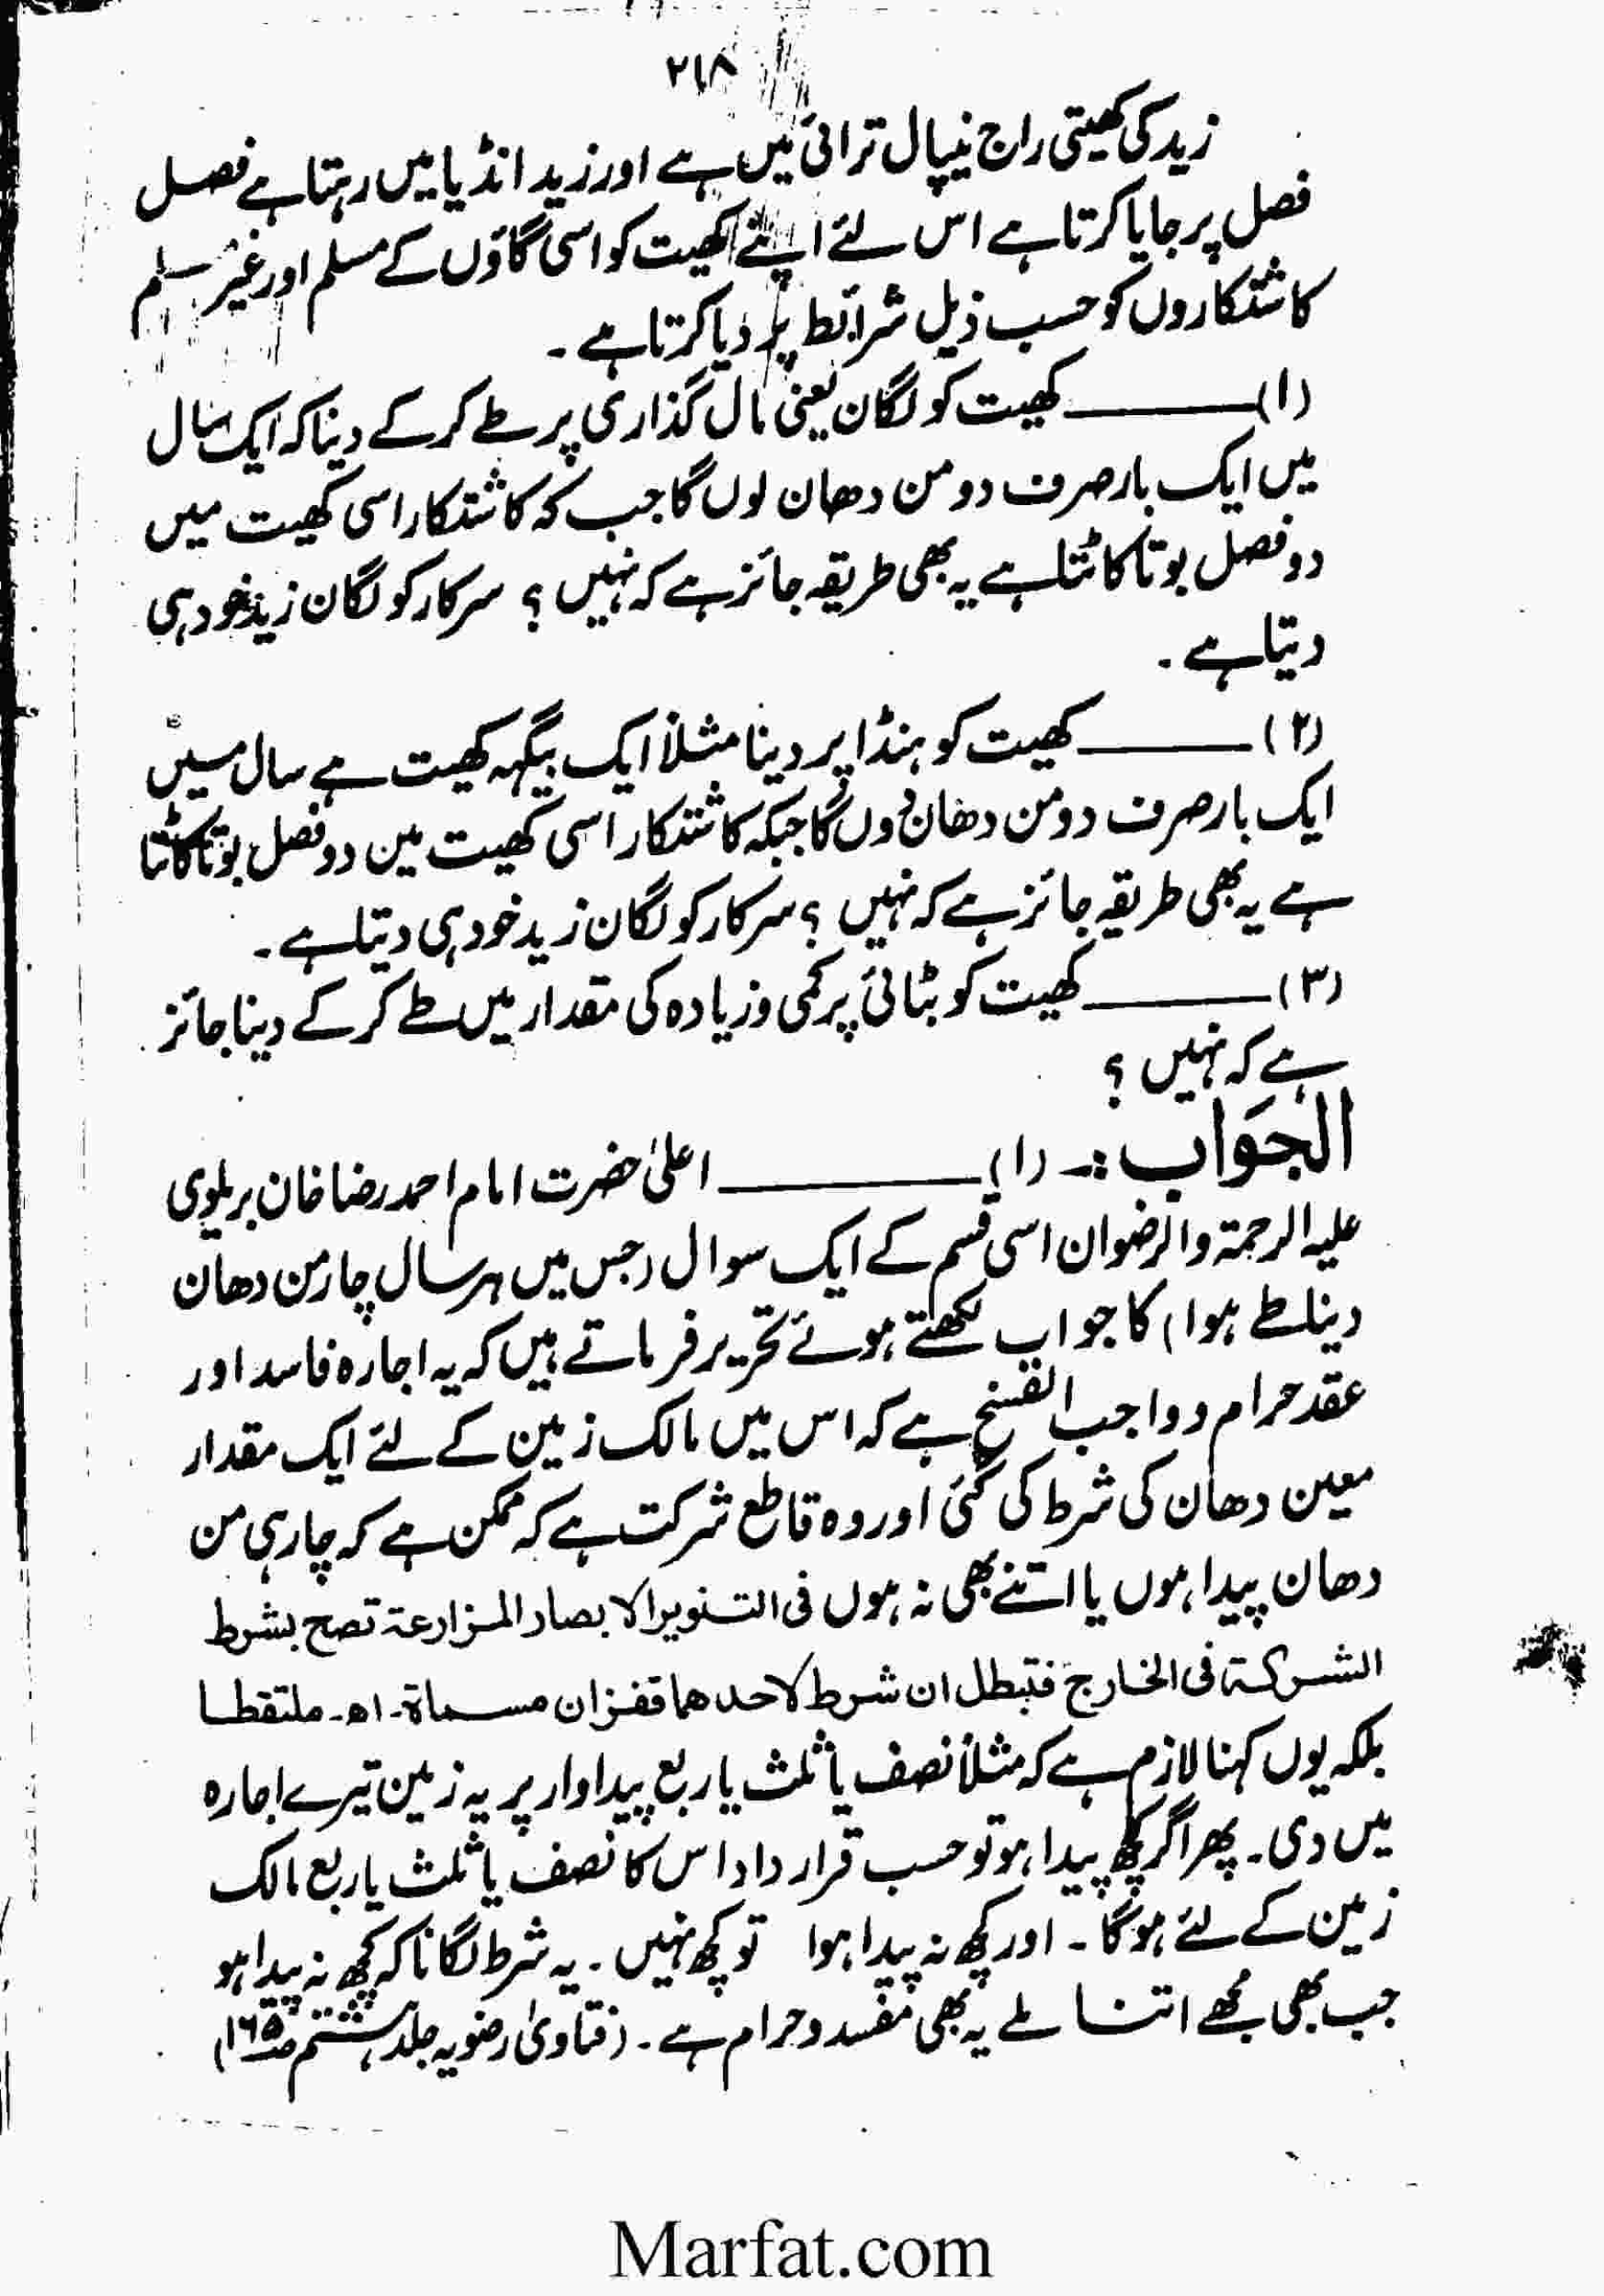 ۲۱۸
زید کی کھیتی راج نیپال ترائی میں ہے اور زید انڈیا میں رہتا ہے فصل
فصل پر جایا کرتا ہے اس لئے اپنے کھیت کو اسی گاؤں کے مسلم اور غیر مسلم
کاشتکاروں کو حسب ذیل شرائط پر دیا کرتا ہے ۔
(۱) ــــــ کھیت کو لگان یعنی مال گذاری پر طے کر کے دینا کہ ایک سال
میں ایک بار صرف دو من دھان لوں گا جب کہ کاشتکار اسی کھیت میں
دو فصل بوتا کاٹتا ہے یہ بھی طریقہ جائز ہے کہ نہیں ؟ سرکار کو لگان زید خود ہی
دیتا ہے ۔
(۲) ــــــ کھیت کو ہنڈا پر دینا مثلاً ایک بیگہہ کھیت ہے سال میں
ایک بار صرف دو من دھان دوں گا جبکہ کاشتکار اسی کھیت میں دو فصل بوتا کاٹتا
ہے یہ بھی طریقہ جائز ہے کہ نہیں ؟ سرکار کو لگان زید خود ہی دیتا ہے ۔
(۳) ــــــ کھیت کو بٹائی پر کمی و زیادہ کی مقدار میں طے کر کے دینا جائز
ہے کہ نہیں ؟
الجَواب :۔ (۱) ــــــ اعلیٰ حضرت امام احمد رضا خان بریلوی
علیہ الرحمۃ والرضوان اسی قسم کے ایک سوال (جس میں ہر سال چار من دھان
دینا طے ہوا) کا جواب لکھتے ہوئے تحریر فرماتے ہیں کہ یہ اجارہ فاسد اور
عقد حرام و واجب الفسخ ہے کہ اس میں مالک زمین کے لئے ایک مقدار
معین دھان کی شرط کی گئی اور وہ قاطع شرکت ہے کہ ممکن ہے کہ چار ہی من
دھان پیدا ہوں یا اتنے بھی نہ ہوں فی التنویر الابصار المزارعۃ تصح بشرط
الشرکۃ فی الخارج فتبطل ان شرط لاحدھما قفزان مسماۃ۔ اھ۔ ملتقطا
بلکہ یوں کہنا لازم ہے کہ مثلاً نصف یا ثلث یا ربع پیداوار پر یہ زمین تیرے اجارہ
میں دی۔ پھر اگر کچھ پیدا ہو تو حسب قرار داد اس کا نصف یا ثلث یا ربع مالک
زمین کے لئے ہوگا ۔ اور کچھ نہ پیدا ہوا تو کچھ نہیں ۔ یہ شرط لگانا کہ کچھ نہ پیدا ہو
جب بھی مجھے اتنا ملے یہ بھی مفسد و حرام ہے ۔ (فتاویٰ رضویہ جلد ہشتم ص۱۶۵)
Marfat.com